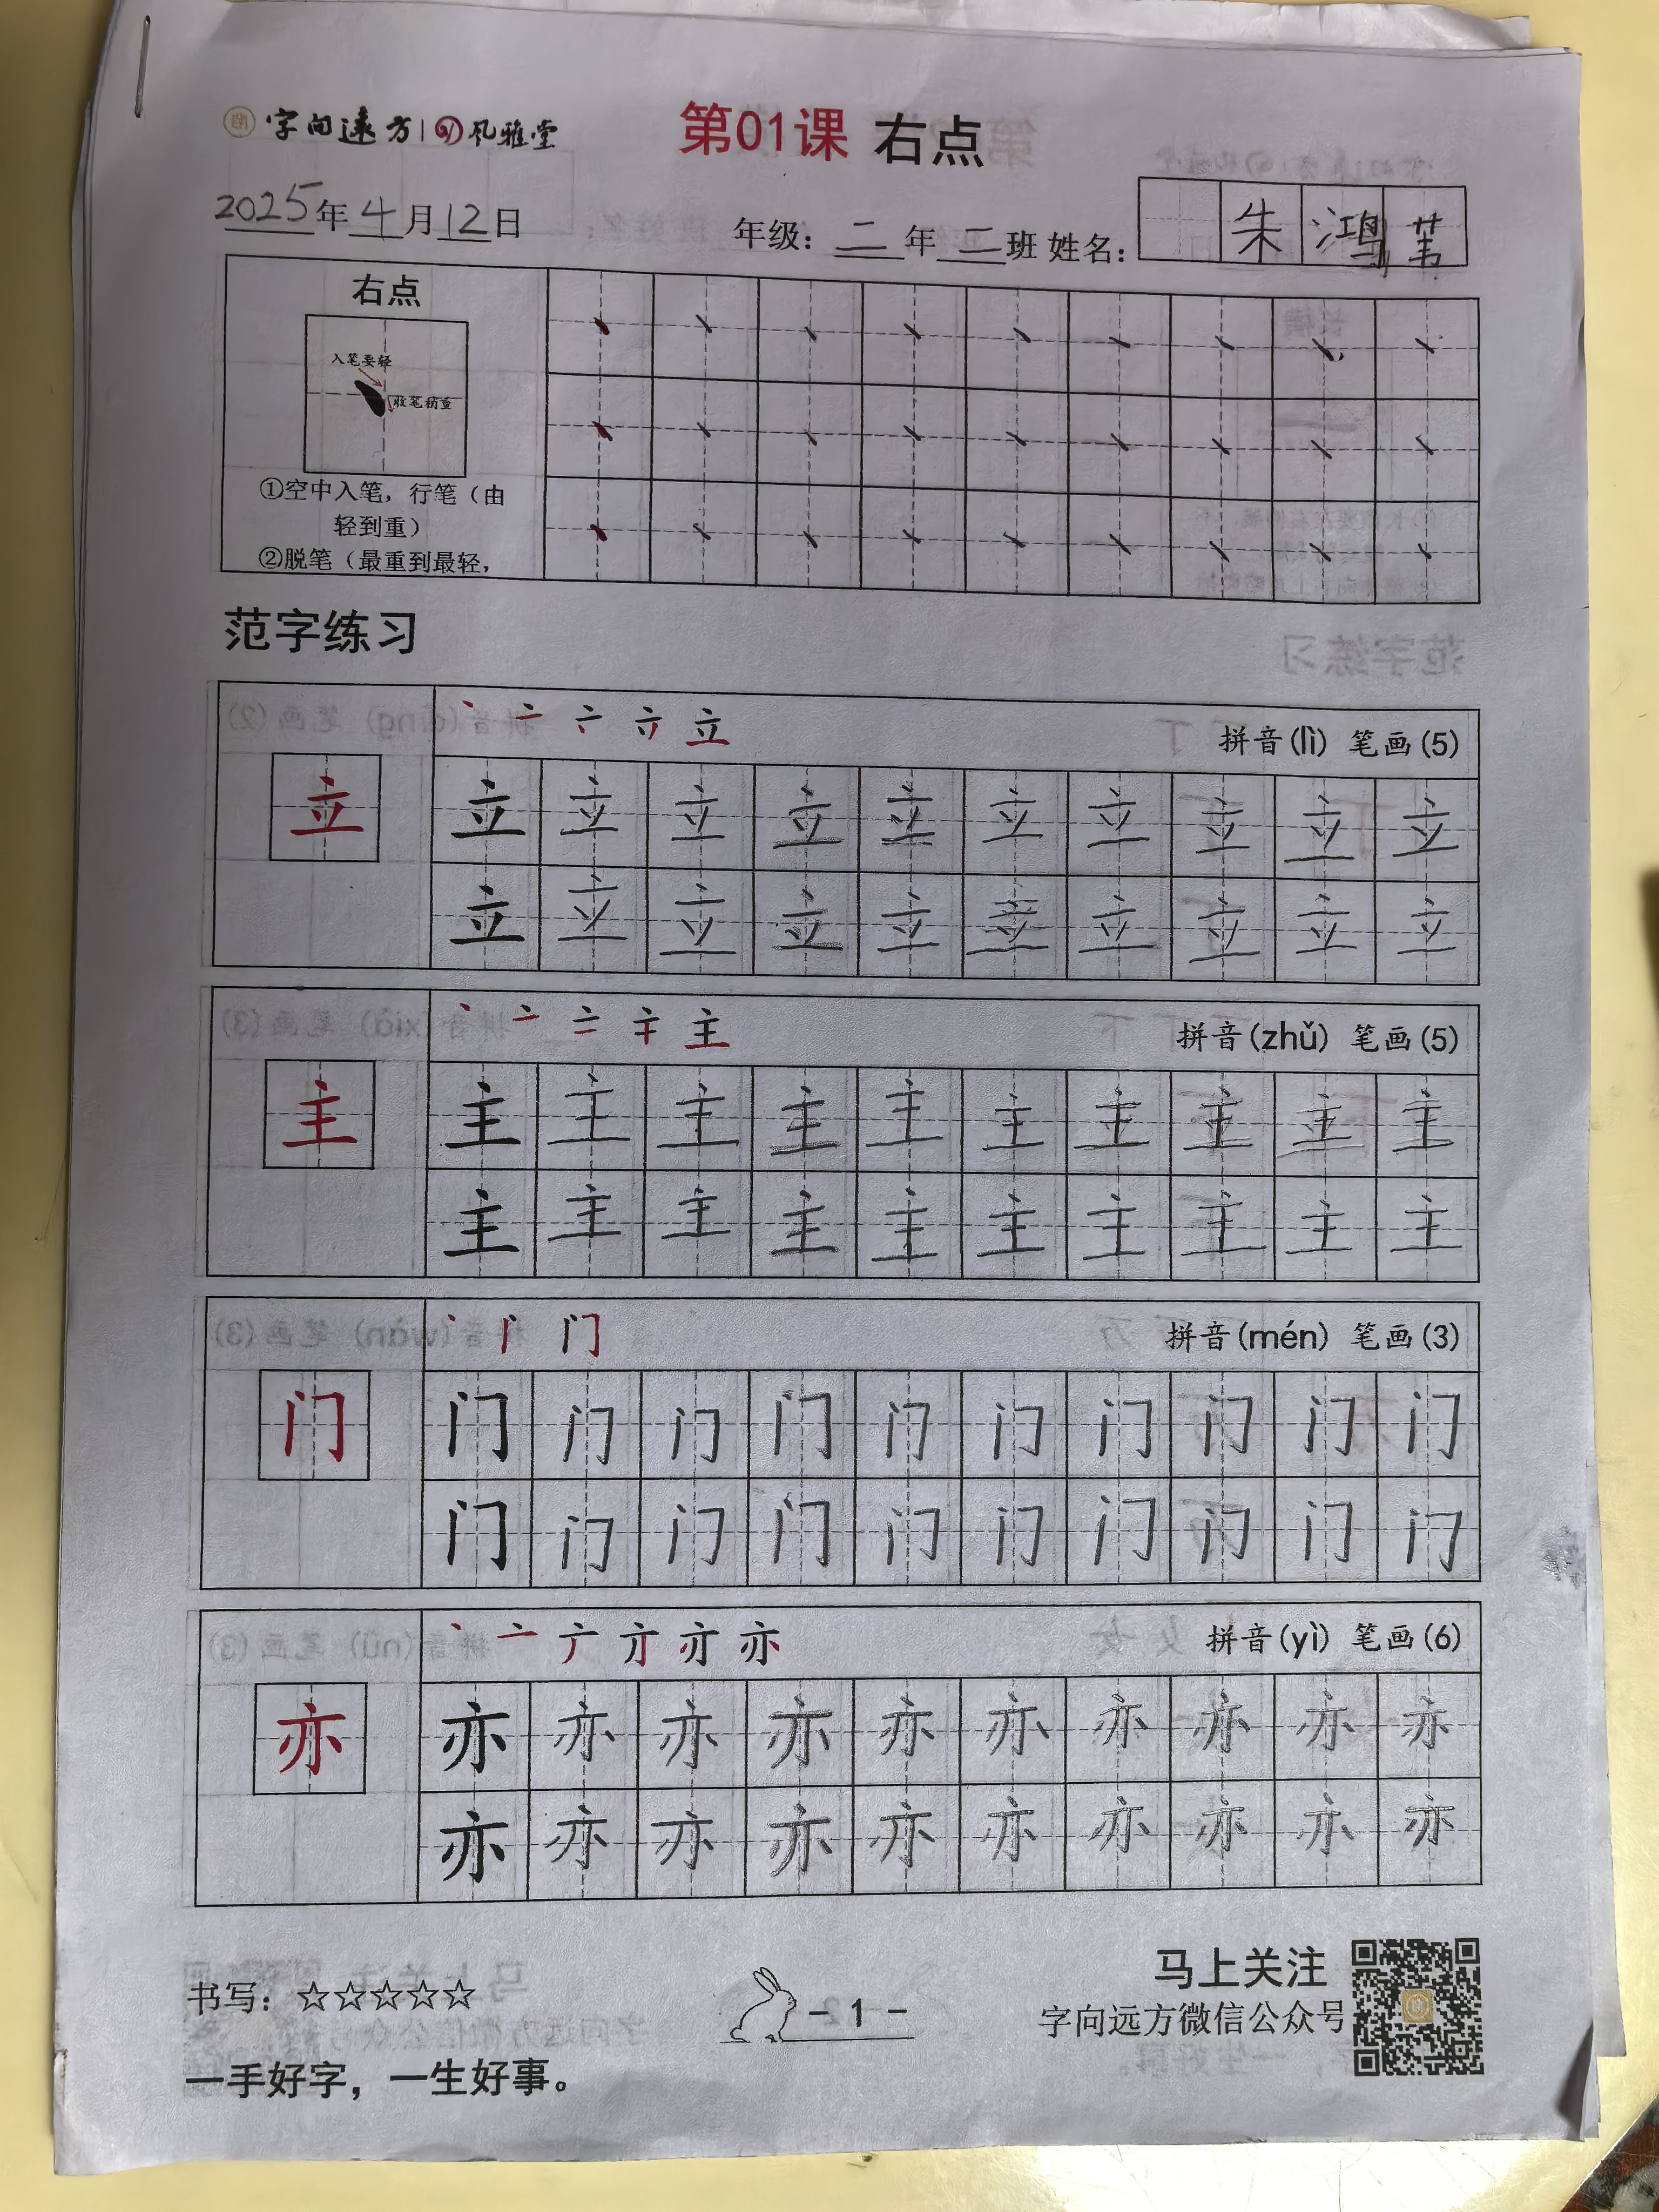 字向远方 风雅堂 第01课 右点
2025年4月12日 年级：二年二班 姓名：朱鸿苇
右点
入笔要轻
收笔稍重
①空中入笔，行笔（由
轻到重）
②脱笔（最重到最轻，
范字练习
立 拼音(lì) 笔画(5)
立 立 立 立 立 立 立 立 立 立 立
立 立 立 立 立 立 立 立 立 立
主 拼音(zhǔ) 笔画(5)
主 主 主 主 主 主 主 主 主 主 主
主 主 主 主 主 主 主 主 主 主
门 拼音(mén) 笔画(3)
门 门 门 门 门 门 门 门 门 门 门
门 门 门 门 门 门 门 门 门 门
亦 拼音(yì) 笔画(6)
亦 亦 亦 亦 亦 亦 亦 亦 亦 亦 亦
亦 亦 亦 亦 亦 亦 亦 亦 亦 亦
书写：☆☆☆☆☆
- 1 -
马上关注
字向远方微信公众号
一手好字，一生好事。